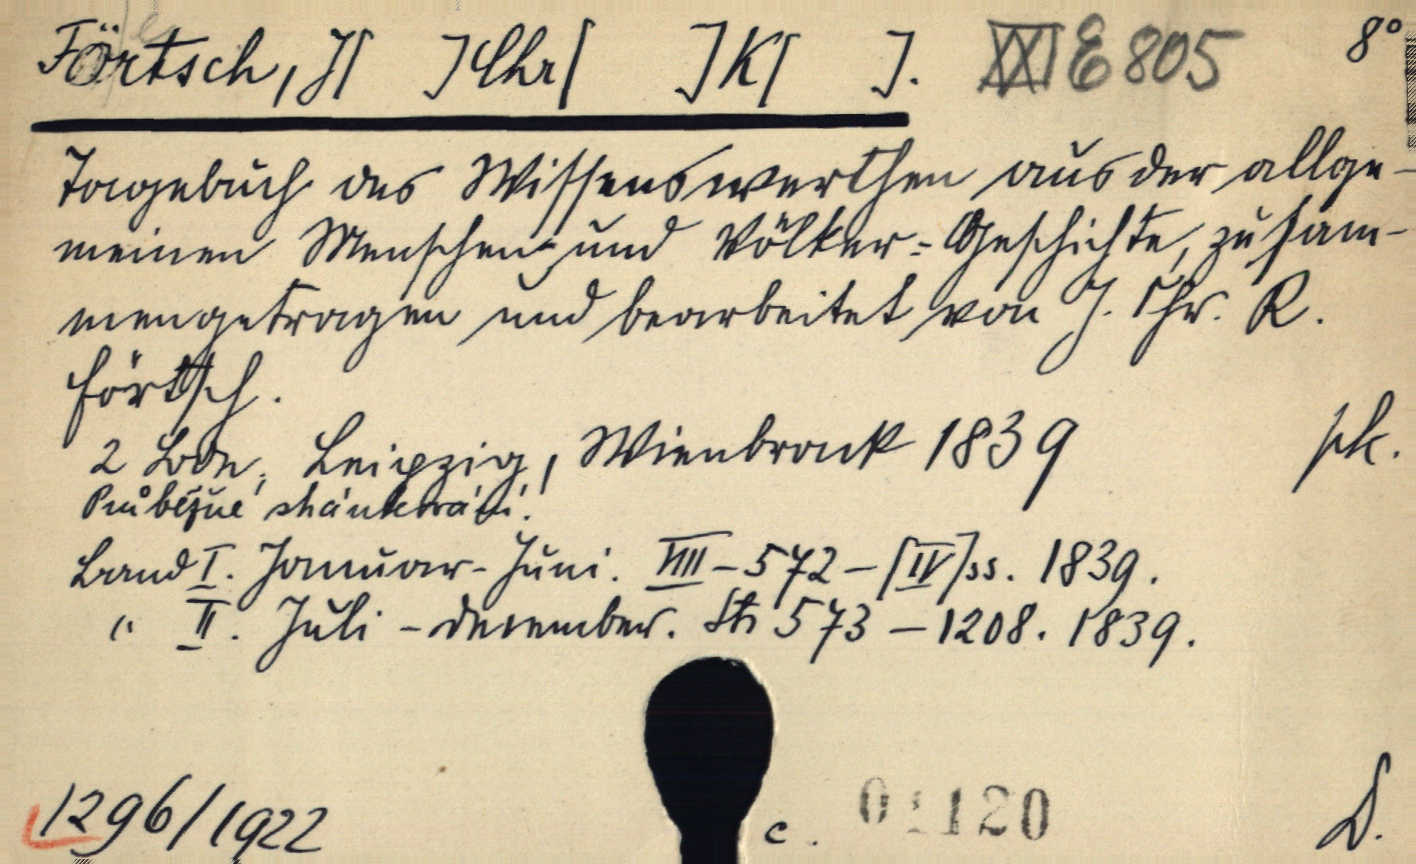 Förtsch, J[ ]Chr[ ]K[ ]. XXI E 805 8°
Tagebuch des Wissenswerthen aus der allge-
meinen Menschen- und Völker-Geschichte, zusam-
mengetragen und bearbeitet von J. Chr. K.
Förtsch.
2 Bde, Leipzig, Wienbrack 1839 pk.
Průběžné stránkování.
Band I. Januar-Juni. VIII-572-[IV]ss. 1839.
" II. Juli-Dezember. Str 573-1208. 1839.
1296/1922 c. 01120 D.